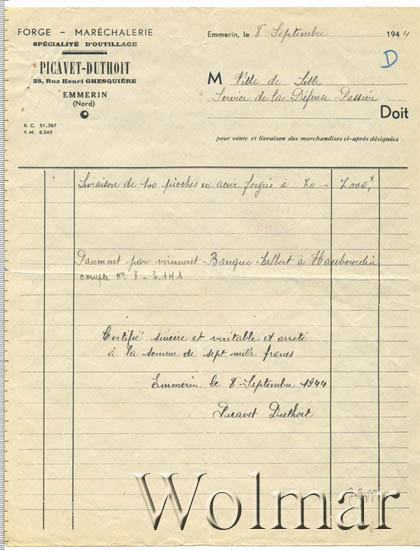 FORGE - MARÉCHALERIE
SPÉCIALITÉ D'OUTILLAGE
PICAVET-DUTHOIT
25, Rue Henri GHESQUIÈRE
EMMERIN
(Nord)
R. C. 51.387
R. M. 8.349
Emmerin, le 8 Septembre 1944
D
M Ville de Lille
Service de la Défense Passive
Doit
pour vente et livraison des marchandises ci-après désignées
Livraison de 100 pioches en acier forgés à 70 - 7000,
Paiement par virement Banque à Haubourdin
compte No
Certifié sincère et veritable et arreté
à la somme de sept mille francs
Emmerin le 8 Septembre 1944
Picavet Duthoit
Wolmar